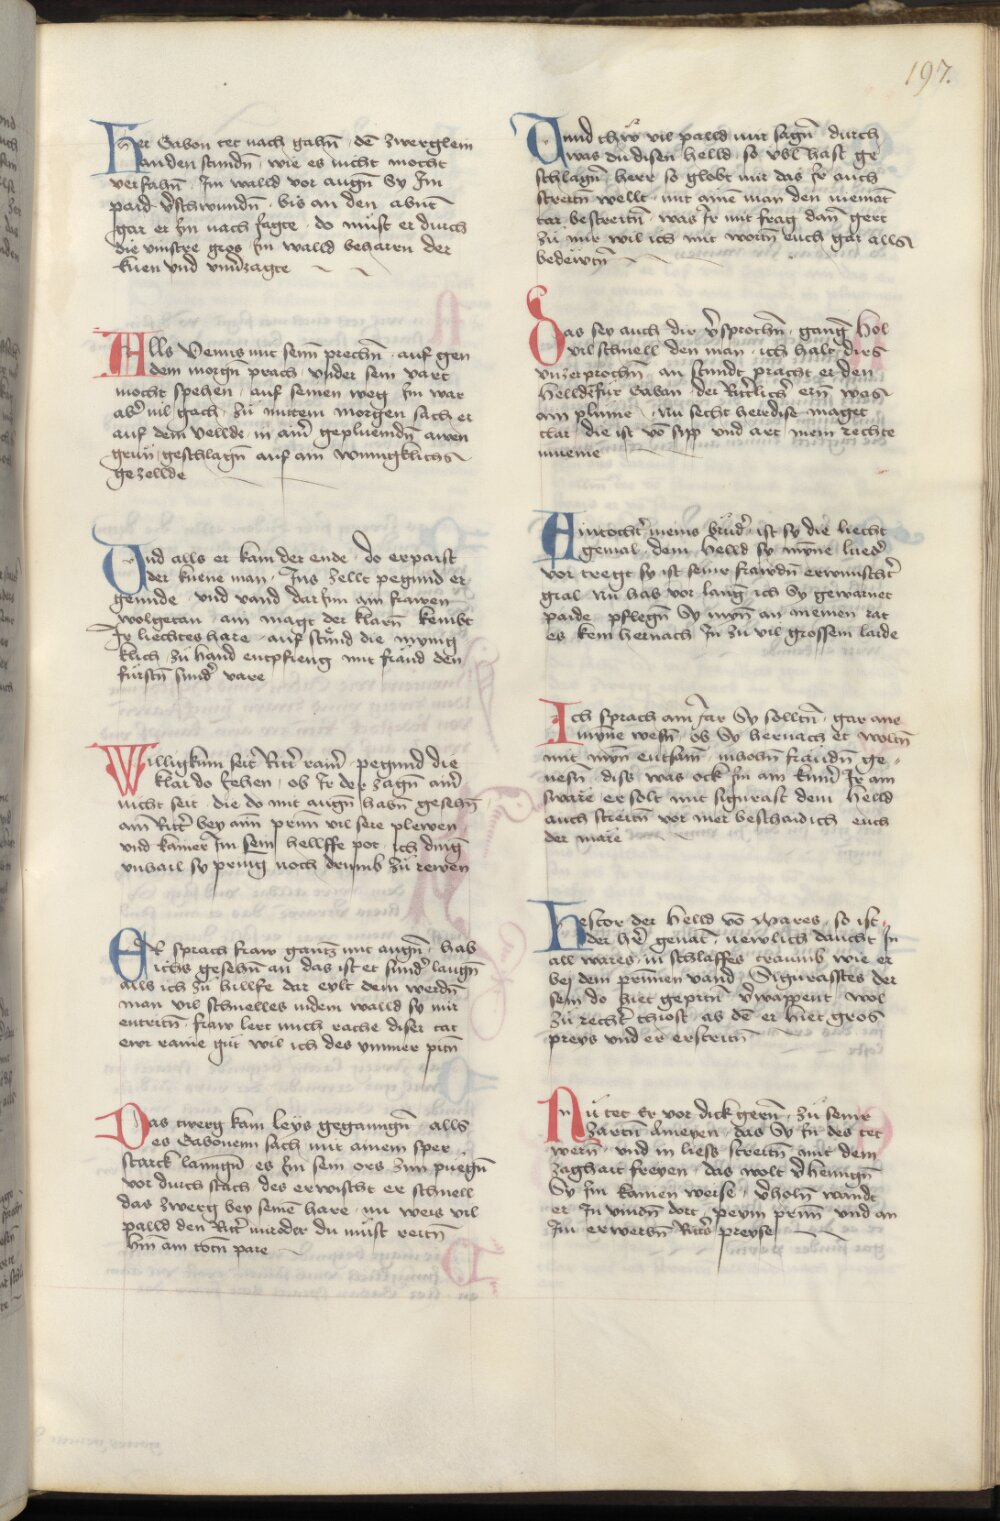 197.
Her Gabon tet nach gahn̄ · dē zwerglein
anden stundn̄ · wie es nicht mocht
verfahn̄ · Im walld vor augn̄ Sy Im
paid v̄schwundn̄ · bis an den abnt
gar er Im nach fagte · do müst er durch
die vinstre gros · Im walld beharen der
kuen vnd vnūzagte
Alls Venus mit seim̄ prechn̄ · auf gen
dem morgn̄ prach · vnder sein vart
mocht spehen · auf seinen weg Im war
ab̄ vil gach · Zü mitem morgen sach er
auf dem vellde · in aim̄ gepluemdn̄ awen
grün · geschlagn̄ auf ain wunigklichs
gezellde
Vnd alls er kam der ende · do erpaist
der kuene man · Ins zellt pegund er
geunde · vnd vand dar Inn ain frawen
wolgetan · ain magt der klarn̄ kembt
Ir liechtes hare · auf stünd die mynig
klich · zü hand entpfieng mit fräud den
fürstn̄ sund̄ vare
Willigkum seit Ritt̄ rain̄ · pegund die
klar do Iehen · ob Ir der zagn̄ ain̄
nicht seit · die do mit augn̄ habn̄ gesehn̄
ain̄ Ritt̄ bey ain̄ prun̄ vil sere plewen
vnd kainer Im sein hellffe pot · ich ding
vnhail sy pring noch drumb zü rewen
Er sprach fraw gantz mit augn̄ · hab
ichs gesehn̄ an das ist et sund̄ laugn̄
alls ich zü hillfe dar eylt dem werdn̄
man vil schnelles indem walld sy mir
entritn̄ · fraw lert mich rache diser tat
ewr raine güt wil ich des ymmer pitn̄
Das twerg kam leys geganngn̄ · alls
es Gabonenn sach mit ainem sper
starck lanngn̄ · es Im sein ors zun puegn̄
vor durch stach · des erwischt er schnell
das zwerg bey seinē hare · nu weis vil
palld den Ritt̄ mir oder du müst reitn̄
hin̄ am totn̄ pare
Vnnd thü vil palld mir sagn̄ · durch
was du disen helld · so vbl hast ge
schlagn̄ herr so globt mir das Ir auch
streitn̄ wellt · mit ainē man den niemāt
tar bestreitn̄ · was Ir mit frag dan̄ gert
zü mir wil ich mit wortn̄ euch gar alls
bedewtn̄
Das sey auch dir v̄sprochn̄ · gang Hol
vil schnell den man · ich halt dirs
vnzerprochn̄ · an stundt pracht er den
Hellde für Gaban · der Ritterlich̄ ern̄ was
ain plume · Nu secht heredise maget
clar · die ist vō sypp vnd art mein rechte
mueme
Ain tocht̄ meins brüd̄ · ist sy die liecht
gemal · dem helld sy myne lued̄
vor tregt sy ist seinr frawdn̄ erwunscht̄
gral · Nu hab vor lanḡ ich Sy gewarnet
paide · pflegn̄ Sy myn̄ an meinen rat
es kem hernach In zu vil grossem laide
Ich sprach ain̄ Jar Sy solltn̄ · gar ane
myne wesn̄ · ob Sy hernach et woltn̄
mit myn̄ entsam̄ · inhohn̄ fraudn̄ ge,
nesn̄ · diss was ock Im ain kum̄ Ir ain
sware · er solt mit sigurast dem helld
auch streitn̄ vor mer beschaid ich euch
der mare
Hestor der helld vō Mares · so ist
der h̄r genāt · newlich daucht In
all wares · in schlaffes traumb wie er
bei dem prunnen vand · Sigurasstes der
sein do hiet gepitn̄ v̄wappent · wol
zü recht̄ thiost · ab dē er hiet gros
preys vnd er erstreitn̄
Nu tet Er vor dick gern̄ · zü seinr
zartn̄ Ameyen · das Sy In des tet
wern̄ · vnd in liess streitn̄ mit dem
zaghait freyen · das wolt v̄heinngn̄
Sy Im kainen weise · v̄holn̄ wandt
er In vinden dort · peym prun̄ vnd an
Im erwerbn̄ Ritt̄s preyse